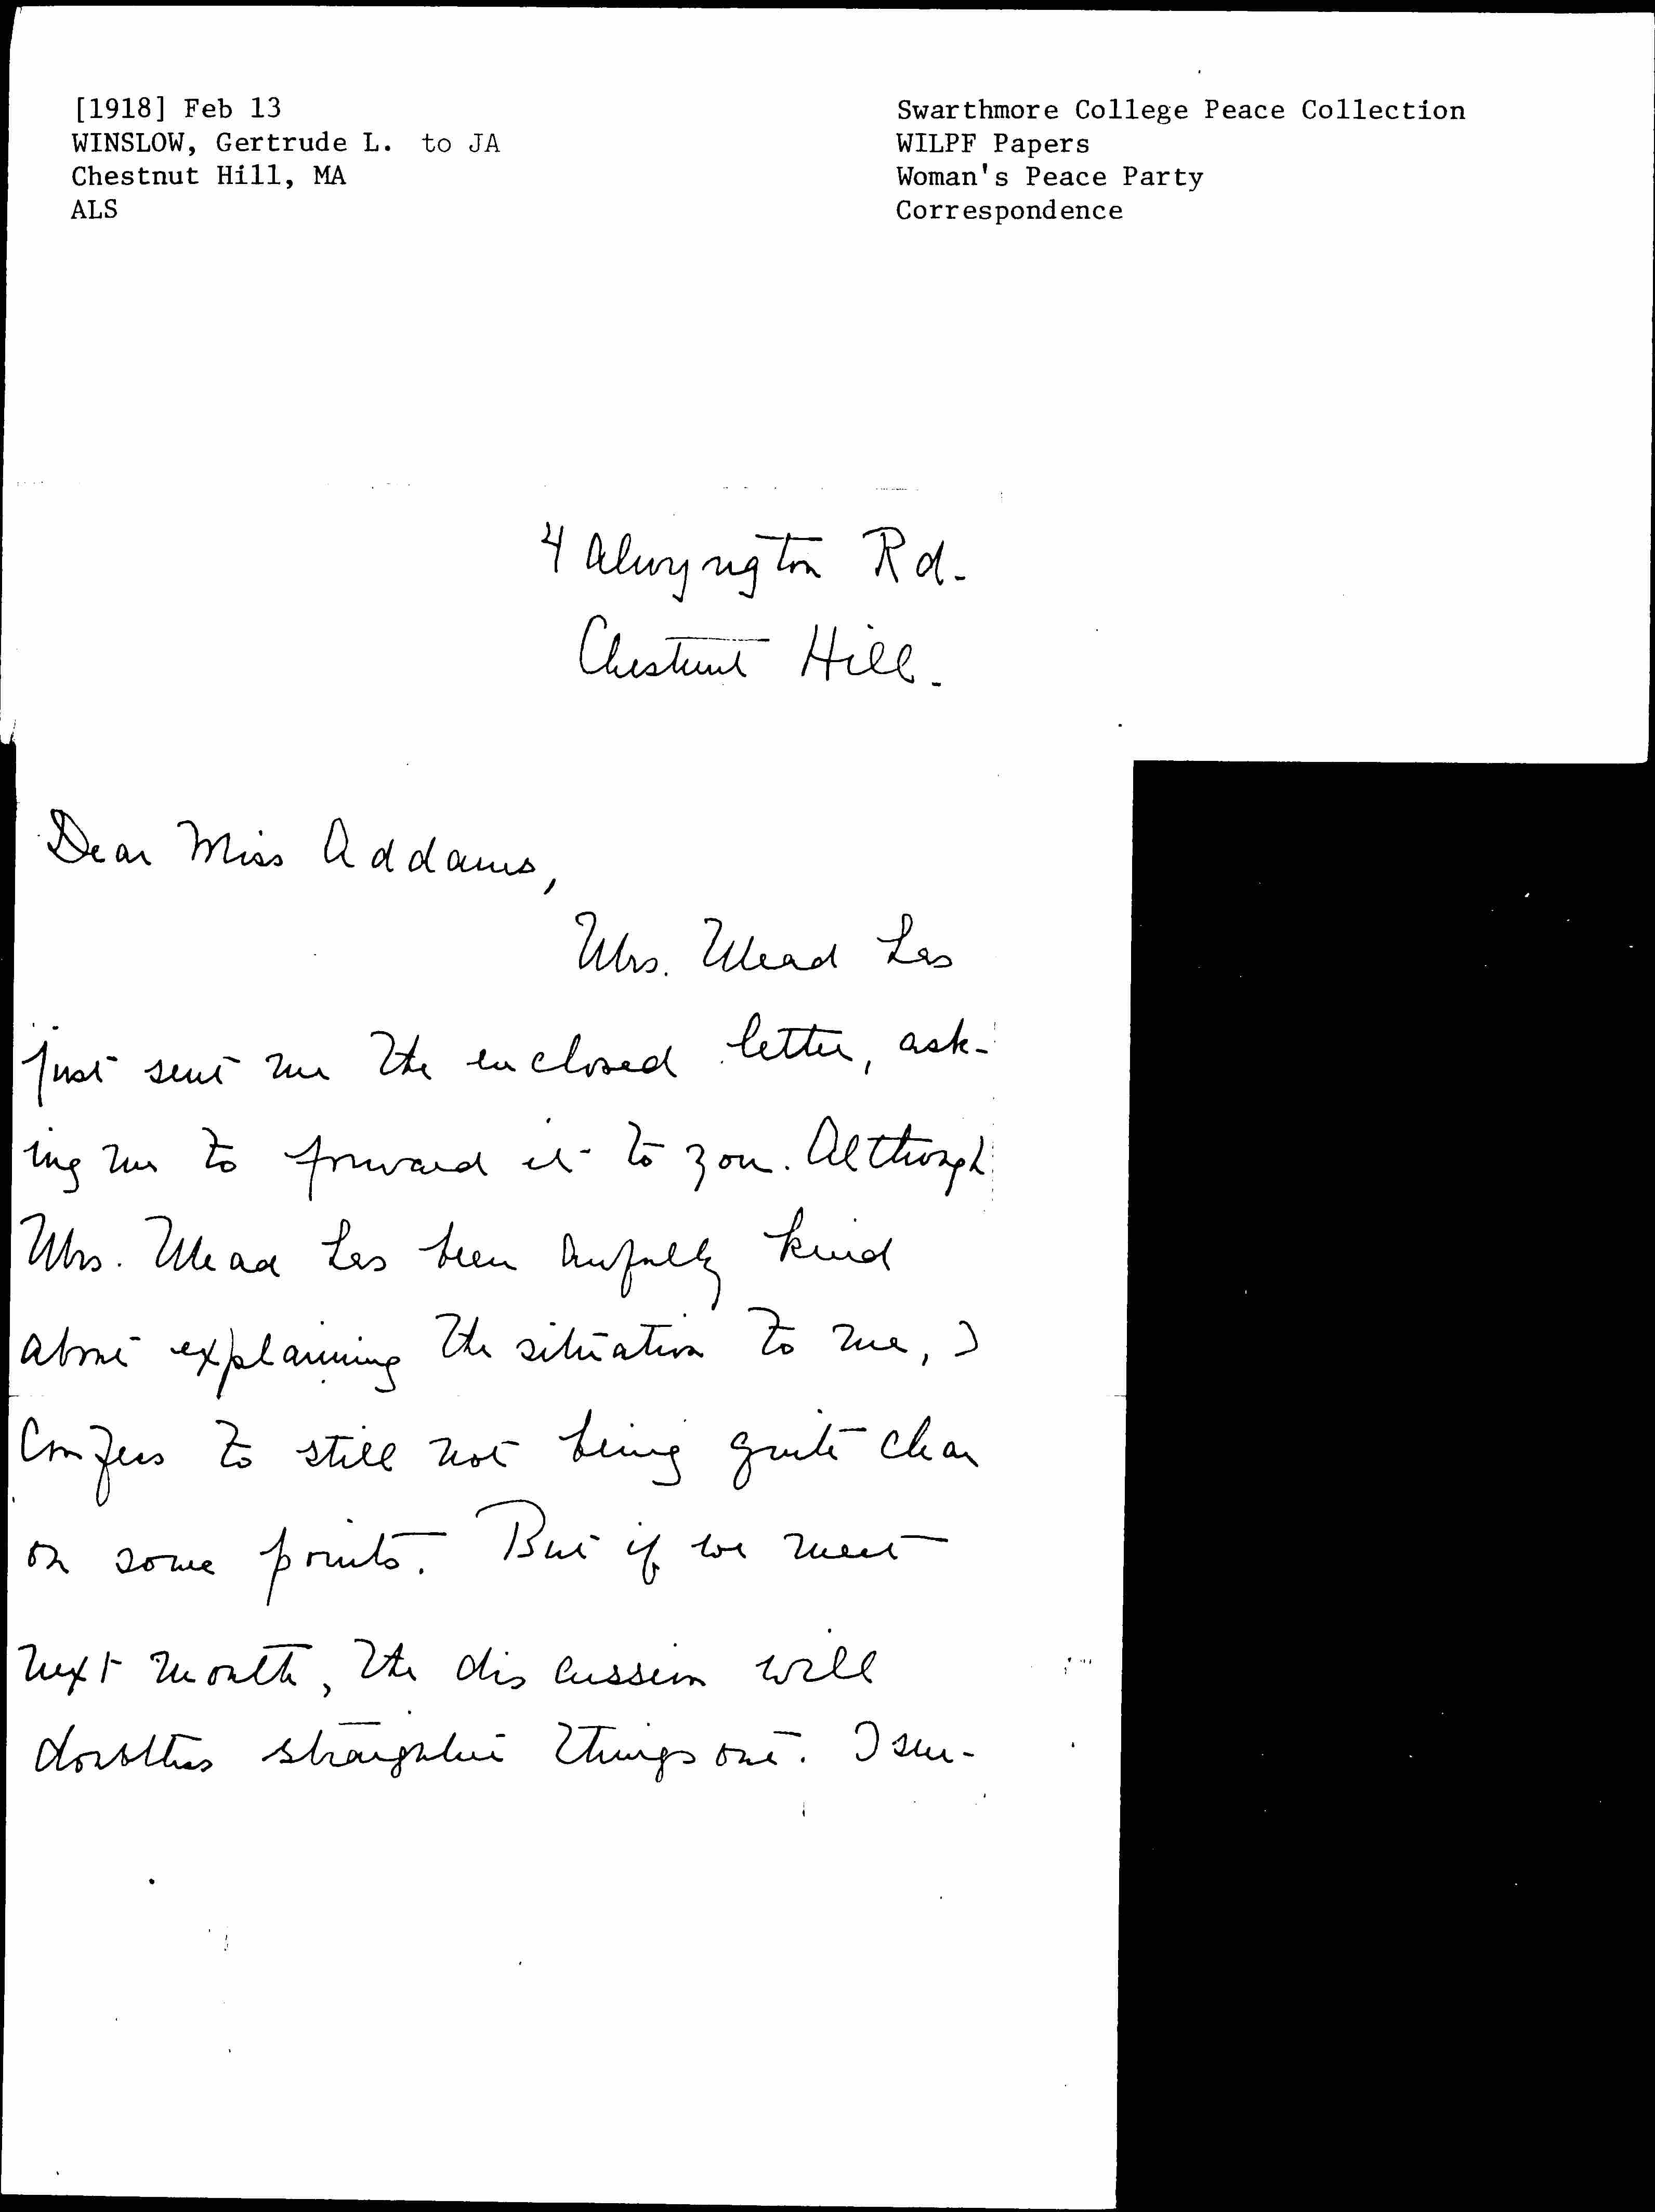 [1918] Feb 13
WINSLOW, Gertrude L. to JA
Chestnut Hill, MA
ALS
Swarthmore College Peace Collection
WILPF Papers
Woman's Peace Party
Correspondence
4 Alwyngton Rd.
Chestnut Hill.
Dear Miss Addams,
Mrs. Mead has
just sent me the enclosed letter, ask-
ing me to forward it to you. Although
Mrs. Mead has been awfully kind
about explaining the situation to me, I
confess to still not being quite clear
on some points. But if we meet
next month, the discussion will
doubtless straighten things out. I sin-